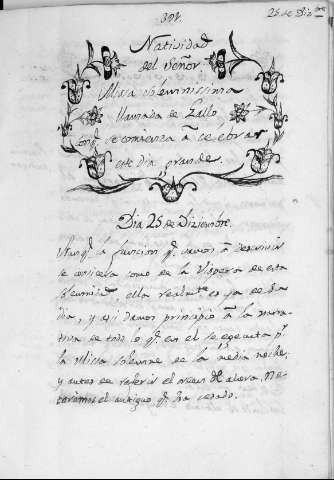 394.
25 de Diz.bre
Natividad
del Señor
Misa solemnissima
llamada de Gallo
conq. se comienza á celebrar
este dia grande.
Dia 25 de Diziembre.
Aunq. la funcion q. vamos á descrivir
se considera como de la Vispera de esta
solemnidad, ella realm.te es ya de su
dia, y asi damos principio á la narra-
tiva de todo lo q. en el se egecuta p.r
la Missa solemne de la media noche,
y antes de referir el modo de ahora, no-
taremos el antiguo q. ha cesado.